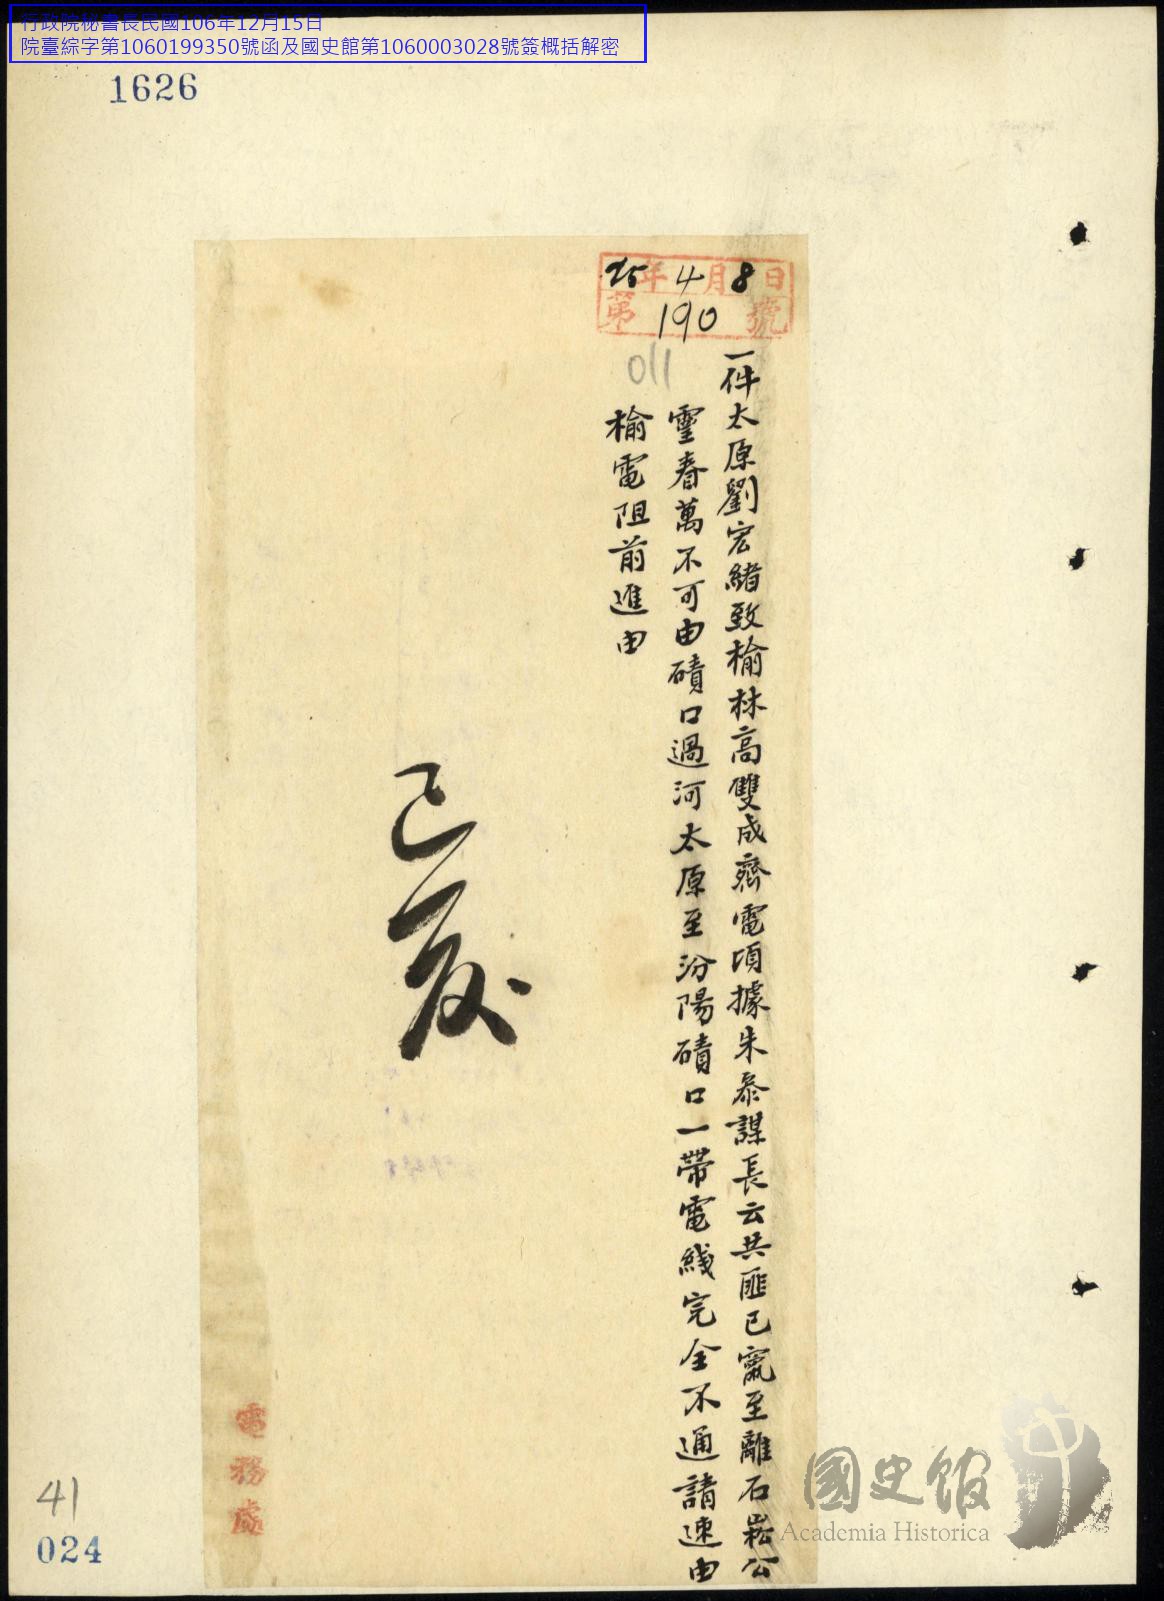 行政院秘書長民國106年12月15日
院臺綜字第1060199350號函及國史館第1060003028號簽概括解密
1626
25年4月8日
第190號
011
一件太原劉宏緒致榆林高雙成齊電頃據朱參謀長云共匪已竄至離石崧公
霊春萬不可由磧口過河太原至汾陽磧口一帶電綫完全不通請速由
榆電阻前進由
已發
電務處
41
024
國史館
Academia Historica